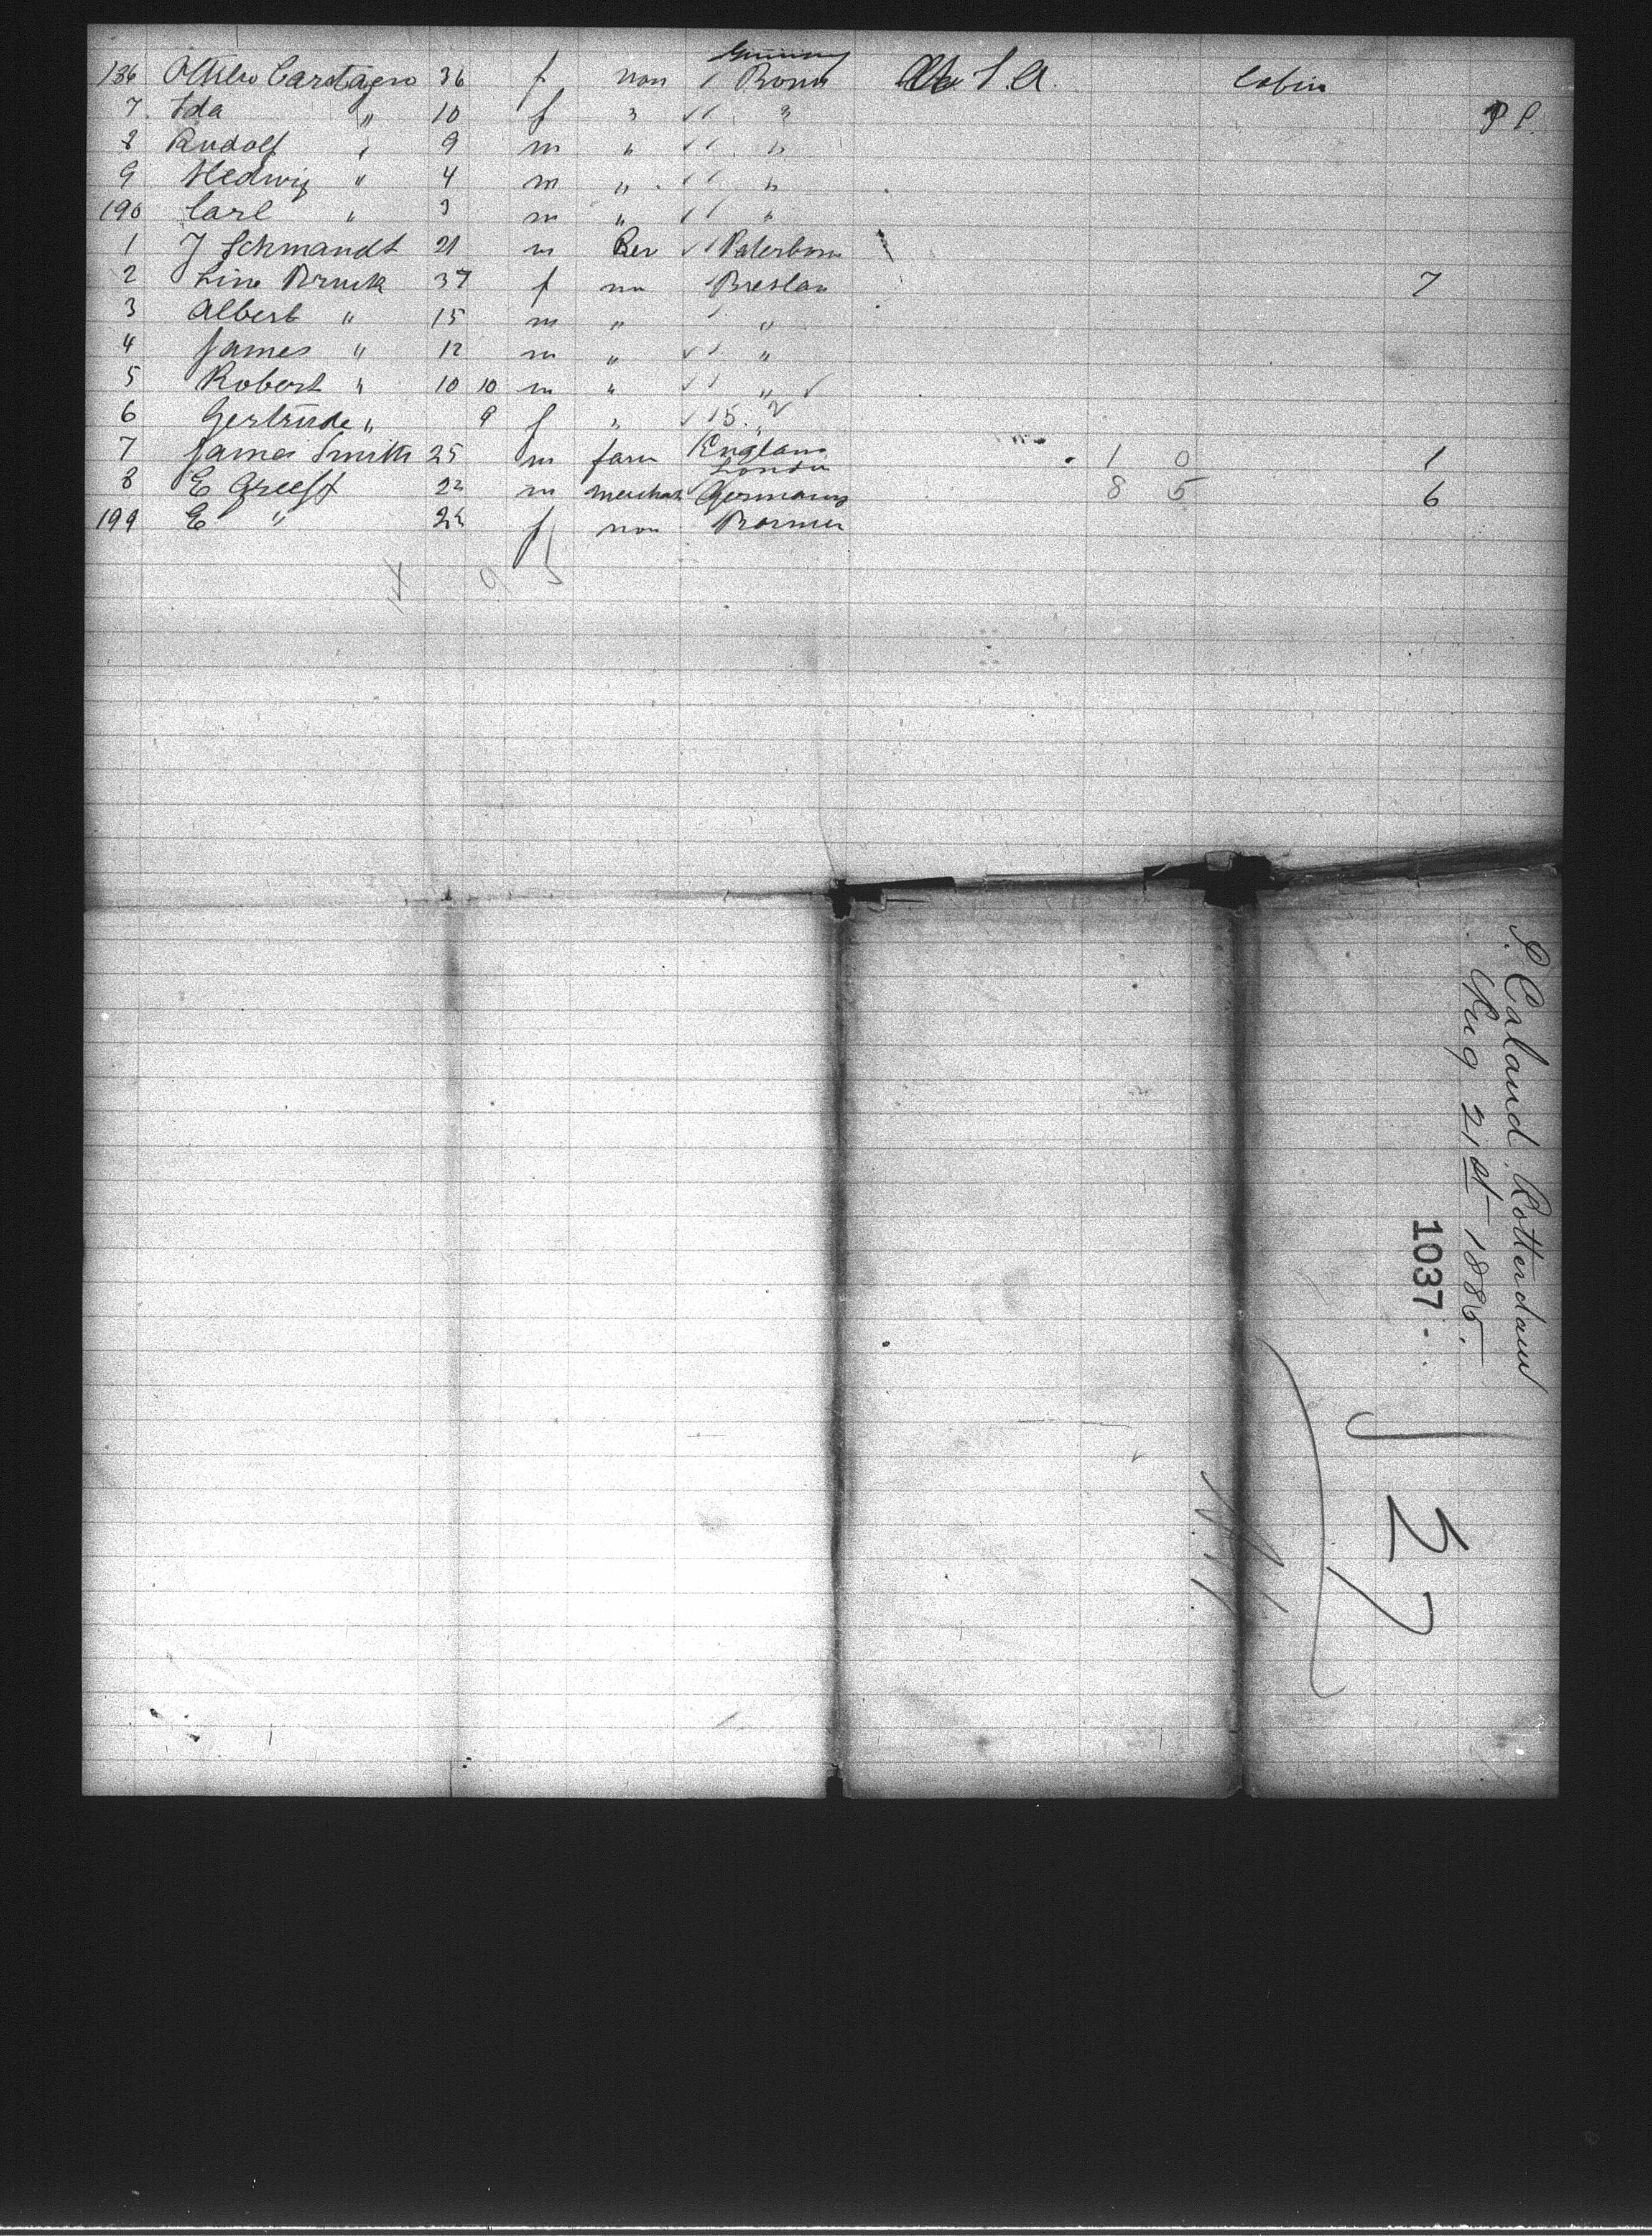 186 Ottilie Carstagen 36 f non Germany Bonn U.S.A. Cabin
7 Ida " 10 f " " P P.
8 Rudolf " 9 m " "
9 Hedwig " 4 m " "
190 Carl " 3 m " "
1 J Schmandt 21 m Rev Paterborn
2 Line Bruck 37 f non Breslau 7
3 Albert " 15 m " "
4 James " 12 m " "
5 Robert " 10 10 m " "
6 Gertrude " 9 f " 15 "
7 James Smith 25 m farm England London 1 0 1
8 E Greeff 22 m merchat Germany 8 5 6
199 E " 22 f non Barmen
14 9 5
P. Caland Rotterdam
Aug 21st 1885.
1037
37